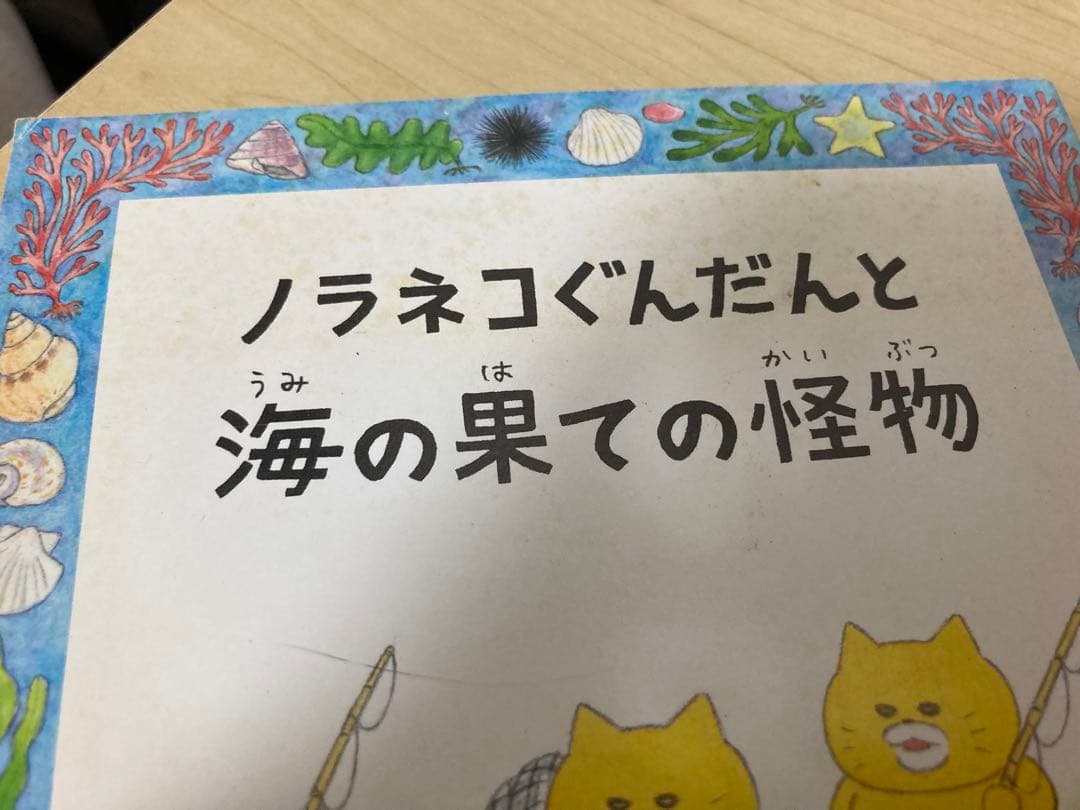 ノラネコぐんだんと
うみ は かい ぶつ
海の果ての怪物